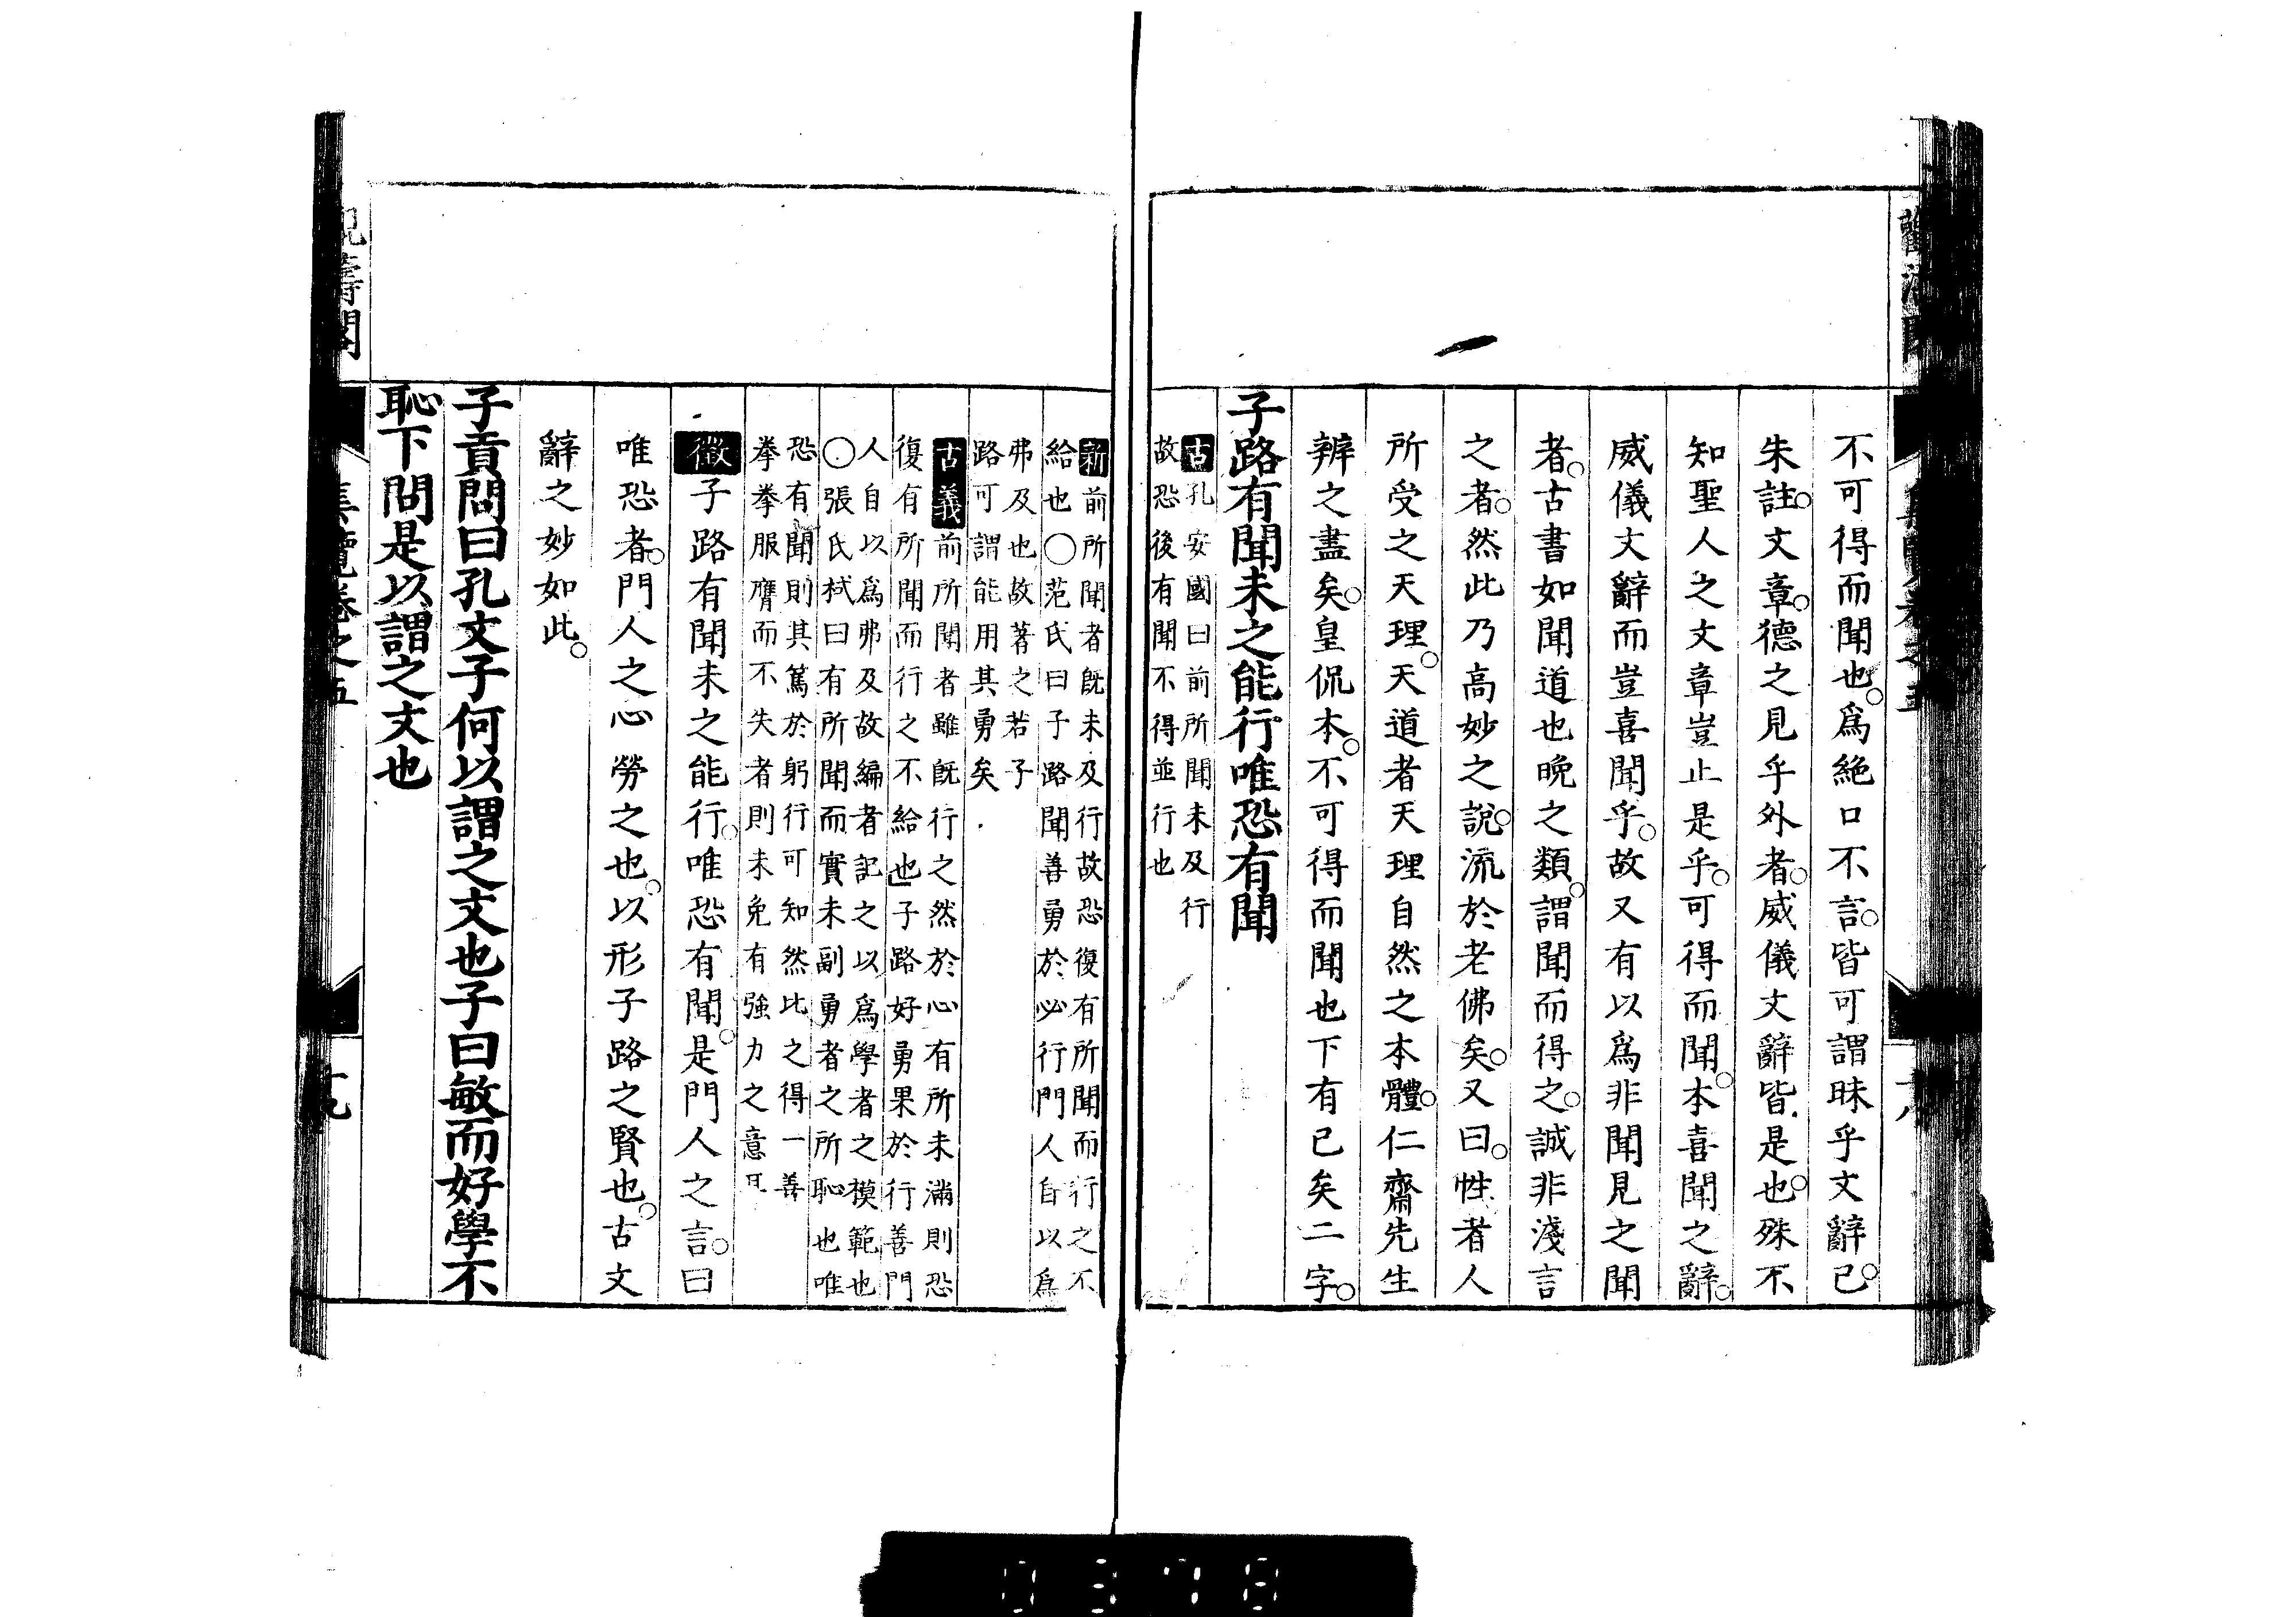 不可得而聞也。爲絶口不言。皆可謂昧乎文辭已。
朱註。文章。德之見乎外者。威儀文辭皆是也。殊不
知聖人之文章豈止是乎。可得而聞。本喜聞之辭。
威儀文辭而豈喜聞乎。故又有以爲非聞見之聞
者。古書如聞道也晩之類。謂聞而得之。誠非淺言
之者。然此乃高妙之說。流於老佛矣。又曰。性者人
所受之天理。天道者天理自然之本體。仁齋先生
辨之盡矣。皇侃本。不可得而聞也下有已矣二字。
子路有聞未之能行唯恐有聞
古孔安國曰前所聞未及行
故恐後有聞不得並行也
新前所聞者既未及行故恐復有所聞而行之不
給也○范氏曰子路聞善勇於必行門人自以爲
弗及也故著之若子
路可謂能用其勇矣
古義前所聞者雖既行之然於心有所未滿則恐
復有所聞而行之不給也子路好勇果於行善門
人自以爲弗及故編者記之以爲學者之模範也
○張氏栻曰有所聞而實未副勇者之所恥也唯
恐有聞則其篤於躬行可知然比之得一善
拳拳服膺而不失者則未免有強力之意耳
徵子路有聞未之能行。唯恐有聞。是門人之言。曰
唯恐者。門人之心勞之也。以形子路之賢也。古文
辭之妙如此。
子貢問曰孔文子何以謂之文也子曰敏而好學不
恥下問是以謂之文也
集覽卷之五
十九
0378